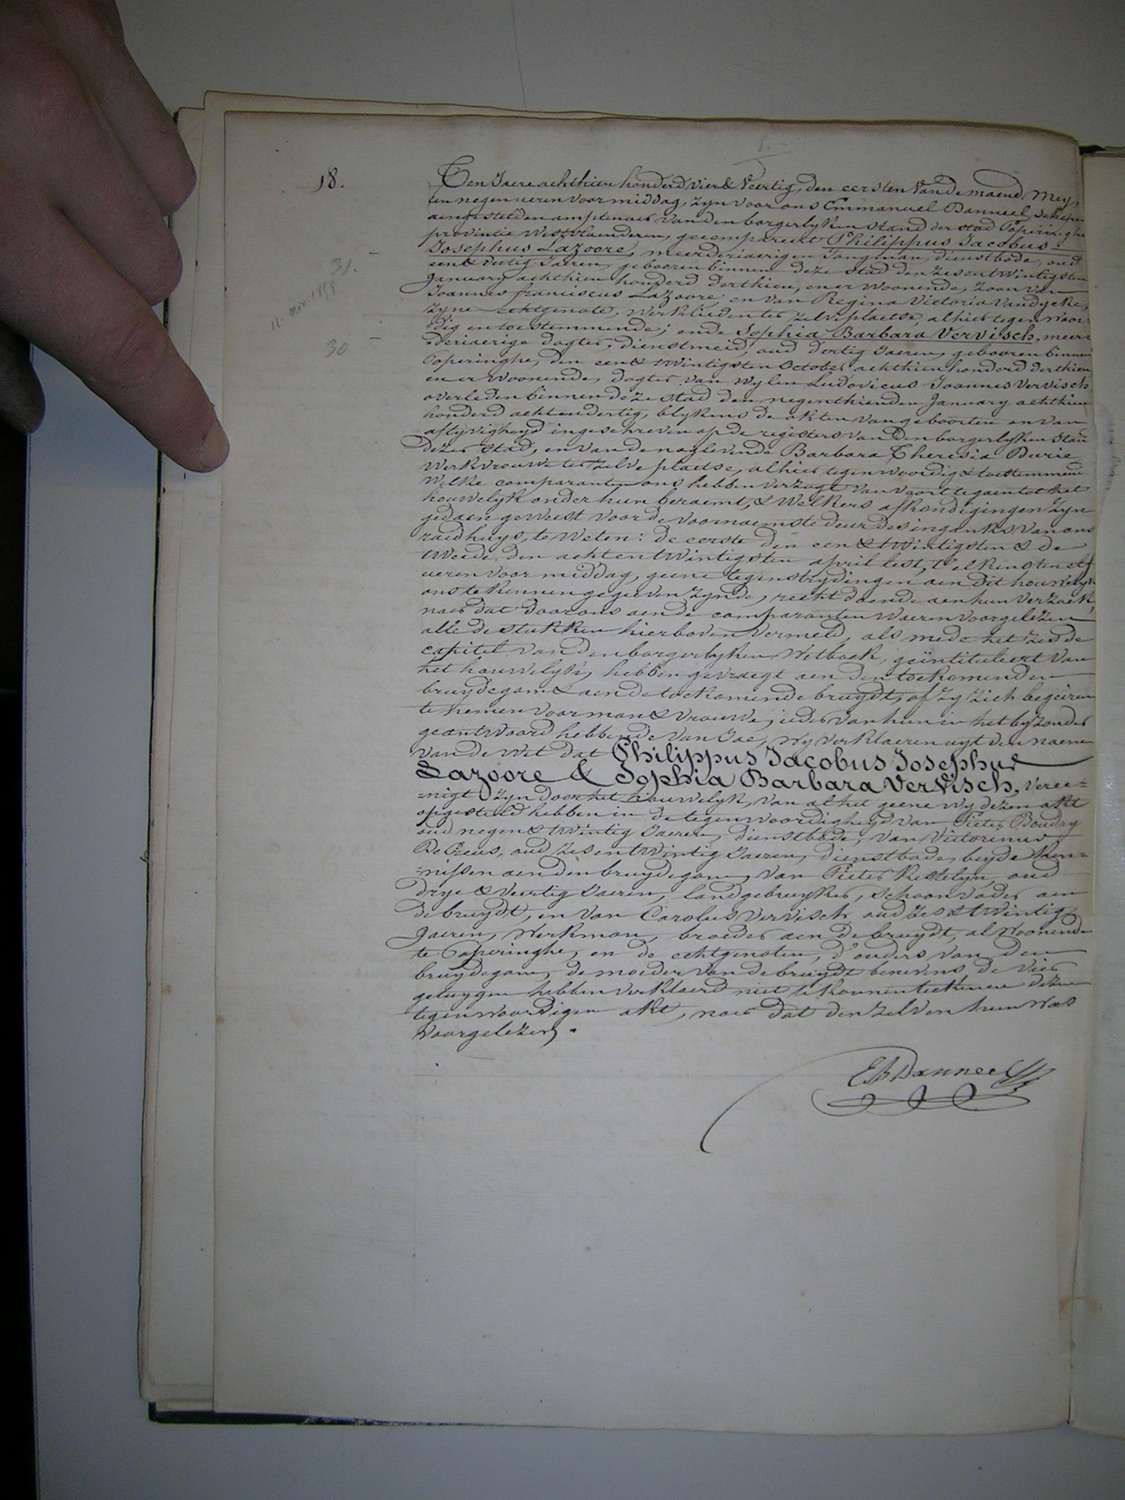 1.
18.
Ten Jaere achthien honderd vier & veertig, den eersten van de maend Mey,
ten negen ueren voor middag, zyn voor ons Emmanuel Banneel, schepen
aengestelden amptenaer van den borgerlyken stand der stad Poperinghe
provintie Westvlaenderen, gecompareert Philippus Jacobus
Josephus Lazoore, meerderjaerigen Jongman, dienstbode, oud
een & dertig Jaeren, gebooren binnen deze stad den zesentwintigsten
January achthien honderd derthien, en er woonende, zoon van
Joannes franciscus Lazoore, en van Regina Victoria Vandycke,
zyne echtgenote, werklieden ter zelve plaetse, alhier tegenwoor-
dig en toestemmende; ende Sophia Barbara Vervisch, meer-
derjaerige dogter, dienstmeid, oud dertig Jaeren, gebooren binnen
Poperinghe, den een & twintigsten October achthien honderd derthien
en er woonende, dogter van wylen Ludovicus Joannes Vervisch
overleden binnen deze stad den negenthienden January achthien
honderd achtendertig, blykens de akten van geboorten en van
aflyvigheyd ingeschreven op de registers van den borgerlyken stand
dezer stad, en van de naerlevende Barbara Theresia Durie
werkvrouwe ter zelve plaetse, alhier tegenwoordig & toestemmende
Welke comparanten ons hebben verzogt van voort te gaen tot het
houwelyk onder hun beraemt, & welkers afkondigingen zyn
gedaen geweest voor de voornaemste deur des ingangs van ons
raedhuys, te weten: de eerste den een & twintigsten & de
tweede den achtentwintigsten april lest, t'elkens ten elf
ueren voor middag, geene tegenstrydingen aen dit houwelyk
ons te kennen gegeven zynde, recht doende aen hun verzoek,
naer dat door ons aen de comparanten waeren voorgelezen
alle de stukken hierboven vermeld, als mede het zesde
capitel van den borgerlyken Wetboek, geïntituleert van
het houwelyk, hebben gevraegt aen den toekomenden
bruydegom & aen de toekomende bruydt, of zy zich begeiren
te nemen voor man & vrouwe; ieder van hun in het byzonder
geantwoord hebbende van Jae, wy verklaeren uyt den naeme
van de Wet dat Philippus Jacobus Josephus
Lazoore & Sophia Barbara Vervisch, veree-
nigt zyn door het houwelyk, van al het geene wy dezen akt
opgesteld hebben in de tegenwoordigheyd van Pieter Boudry
oud negen & twintig Jaeren, dienstbode, van Victorinus
De Creus, oud zesentwintig Jaeren, dienstbode, beyde ken-
nissen aen den bruydegom, van Pieter Kestelyn, oud
drye & veertig Jaeren, landgebruyker, schoonvader aen
de bruydt, en van Carolus Vervisch oud zes & twintig
Jaeren, werkman, broeder aen de bruydt, al woonende
te Poperinghe, en de echtgenoten, d'ouders van den
bruydegom, de moeder van de bruydt benevens de vier
getuygen hebben verklaerd niet te konnen teekenen dezen
tegenwoordigen akt, naer dat den zelven hun was
voorgelezen.
31.
30
Eb Banneel